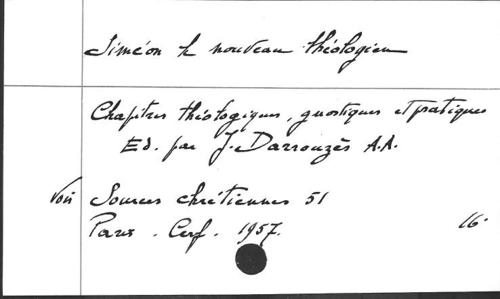 Siméon le nouveau théologien
Chapitres théologiques, gnostiques et pratiques
Ed. par J. Darrouzès A.A.
Voir Sources chrétiennes 51
Paris. Cerf. 1957. 16°